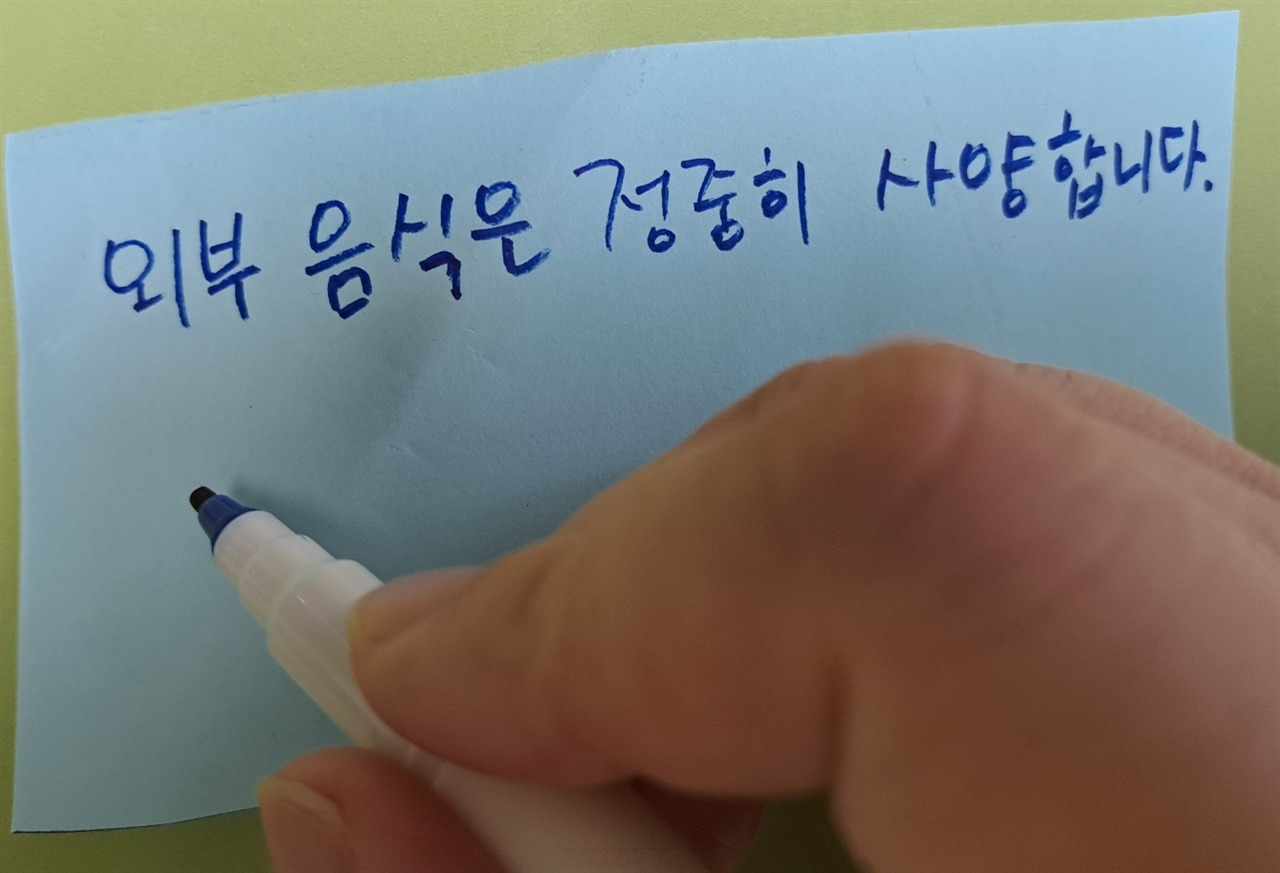 외부 음식은 정중히 사양합니다.